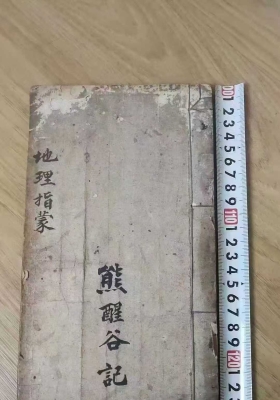 地理指蒙
熊醒谷記
00
1
2
3
4
5
6
7
8
9
110
1
2
3
4
5
6
7
8
9
120
1